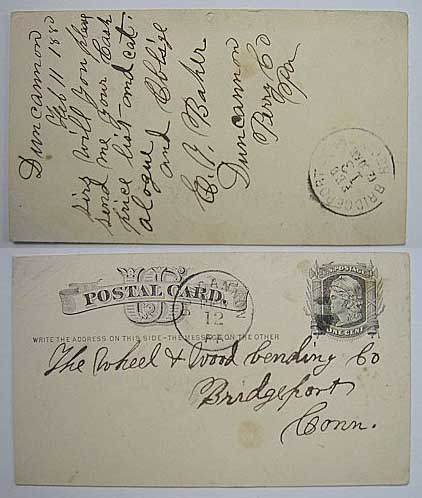 Duncannon
Feb 11 1880
Sirs Will you please
send me your Cash
price list and cat-
alogue and Oblige
C. P. Baker
Duncannon
Perry Co
Pa
BRIDGEPORT
U.S. POSTAGE
ONE CENT
POSTAL CARD.
12
WRITE THE ADDRESS ON THIS SIDE-THE MESSAGE ON THE OTHER
The Wheel & Wood bending Co
Bridgeport
Conn.